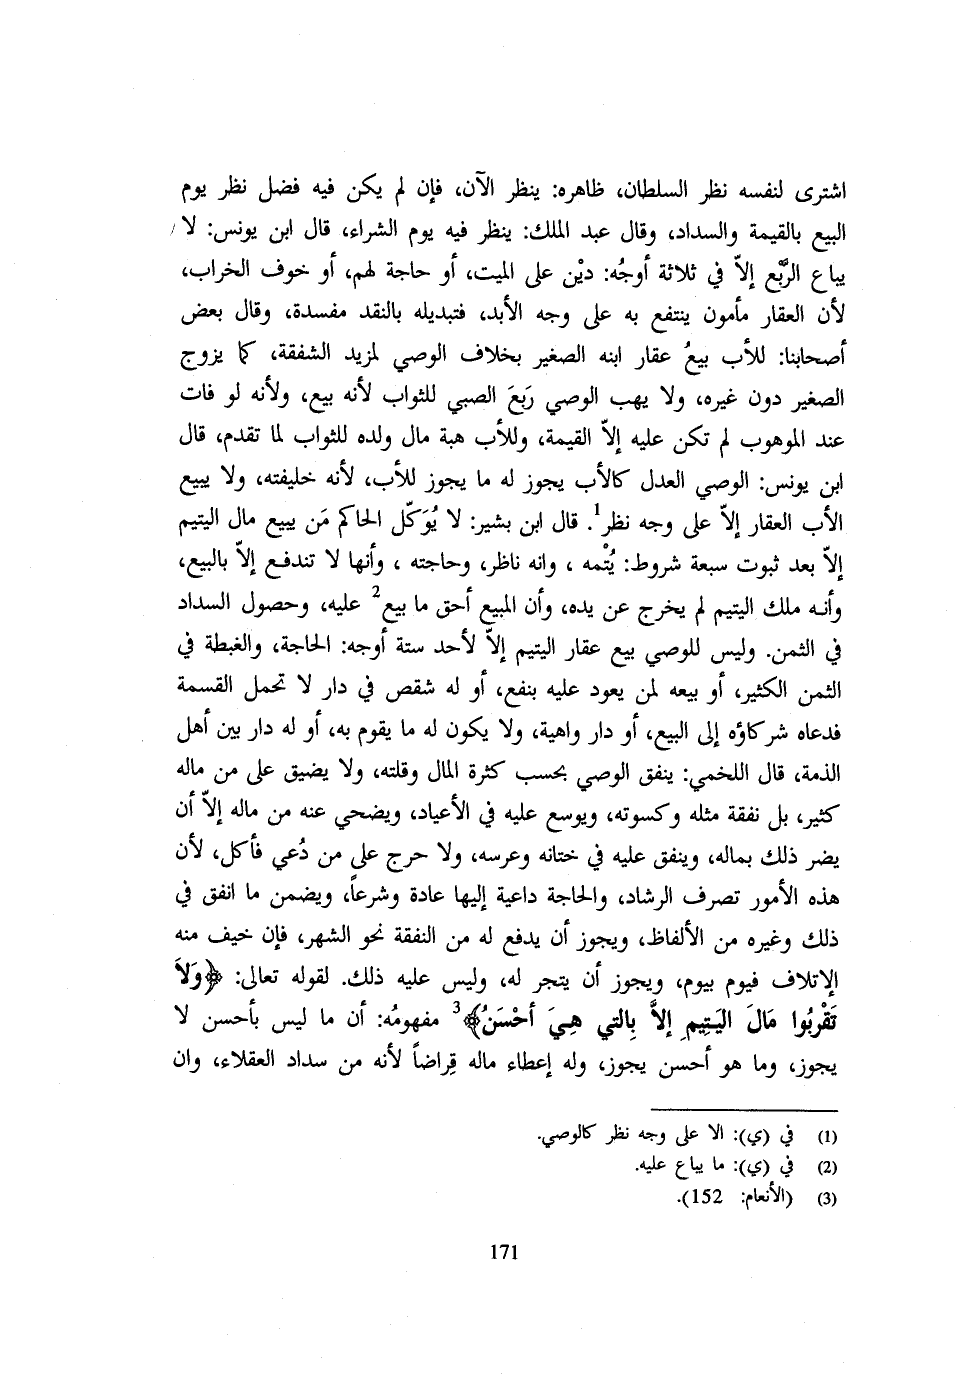 اشترى لنفسه نظر السلطان، ظاهره: ينظر الآن، فإن لم يكن فيه فضل نظر يوم
البيع بالقيمة والسداد، وقال عبد الملك: ينظر فيه يوم الشراء، قال ابن يونس: لا
يباع الرَّبْع إلاّ في ثلاثة أوجُه: ديْن على الميت، أو حاجة لهم، أو خوف الخراب،
لأن العقار مأمون ينتفع به على وجه الأبد، فتبديله بالنقد مفسدة، وقال بعض
أصحابنا: للأب بيعُ عقار ابنه الصغير بخلاف الوصي لمزيد الشفقة، كما يزوج
الصغير دون غيره، ولا يهب الوصي رَبَعَ الصبي للثواب لأنه بيع، ولأنه لو فات
عند الموهوب لم تكن عليه إلاّ القيمة، وللأب هبة مال ولده للثواب لما تقدم، قال
ابن يونس: الوصي العدل كالأب يجوز له ما يجوز للأب، لأنه خليفته، ولا يبيع
الأب العقار إلاّ على وجه نظر1. قال ابن بشير: لا يُوَكّل الحاكم مَن يبيع مال اليتيم
إلاّ بعد ثبوت سبعة شروط: يُتْمه ، وانه ناظر، وحاجته ، وأنها لا تندفع إلاّ بالبيع،
وأنه ملك اليتيم لم يخرج عن يده، وأن المبيع أحق ما بيع2 عليه، وحصول السداد
في الثمن. وليس للوصي بيع عقار اليتيم إلاّ لأحد ستة أوجه: الحاجة، والغبطة في
الثمن الكثير، أو بيعه لمن يعود عليه بنفع، أو له شقص في دار لا تحمل القسمة
فدعاه شركاؤه إلى البيع، أو دار واهية، ولا يكون له ما يقوم به، أو له دار بين أهل
الذمة، قال اللخمي: ينفق الوصي بحسب كثرة المال وقلته، ولا يضيق على من ماله
كثير، بل نفقة مثله وكسوته، ويوسع عليه في الأعياد، ويضحي عنه من ماله إلاّ أن
يضر ذلك بماله، وينفق عليه في ختانه وعرسه، ولا حرج على من دُعي فأكل، لأن
هذه الأمور تصرف الرشاد، والحاجة داعية إليها عادة وشرعاً، ويضمن ما انفق في
ذلك وغيره من الألفاظ، ويجوز أن يدفع له من النفقة نحو الشهر، فإن خيف منه
الإتلاف فيوم بيوم، ويجوز أن يتجر له، وليس عليه ذلك. لقوله تعالى: ﴿وَلاَ
تَقْرَبُوا مَالَ اليَتِيمِ إلاَّ بِالتي هِيَ أحْسَنُ﴾3 مفهومُه: أن ما ليس بأحسن لا
يجوز، وما هو أحسن يجوز، وله إعطاء ماله قِراضاً لأنه من سداد العقلاء، وان
(1) في (ي): الا على وجه نظر كالوصي.
(2) في (ي): ما يباع عليه.
(3) (الأنعام: 152).
171